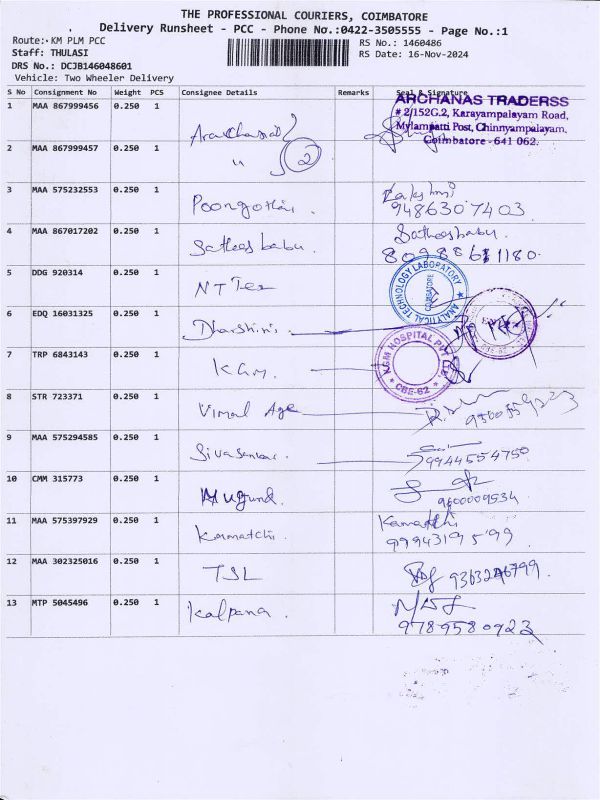 THE PROFESSIONAL COURIERS, COIMBATORE
Delivery Runsheet - PCC - Phone No.:0422-3505555 - Page No.:1
Route: KM PLM PCC
RS No.: 1460486
Staff: THULASI
RS Date: 16-Nov-2024
DRS No.: DCJB146048601
Vehicle: Two Wheeler Delivery
S No Consignment No Weight PCS Consignee Details Remarks Seal & Signature
1 MAA 867999456 0.250 1
ARCHANAS TRADERSS
# 2/152G.2, Karayampalayam Road,
Mylampatti Post, Chinnyampalayam,
Coimbatore - 641 062.
2 MAA 867999457 0.250 1 " 2
3 MAA 575232553 0.250 1 Poongothai.
9486307403
4 MAA 867017202 0.250 1 Sathees babu. Satheesbabu.
5 DDG 920314 0.250 1 NTTex
ANALYTICAL TECHNOLOGY LABORATORY
COIMBATORE
6 EDQ 16031325 0.250 1 Dharshini.
7 TRP 6843143 0.250 1
HOSPITAL PVT LTD
CBE-62
8 STR 723371 0.250 1 Vimal Age
9 MAA 575294585 0.250 1
9944554750
10 CMM 315773 0.250 1 Mugund.
9600009534
11 MAA 575397929 0.250 1 Kamatchi. Kamatchi
9994319599
12 MAA 302325016 0.250 1 TSL
13 MTP 5045496 0.250 1 Kalpana.
9789580923